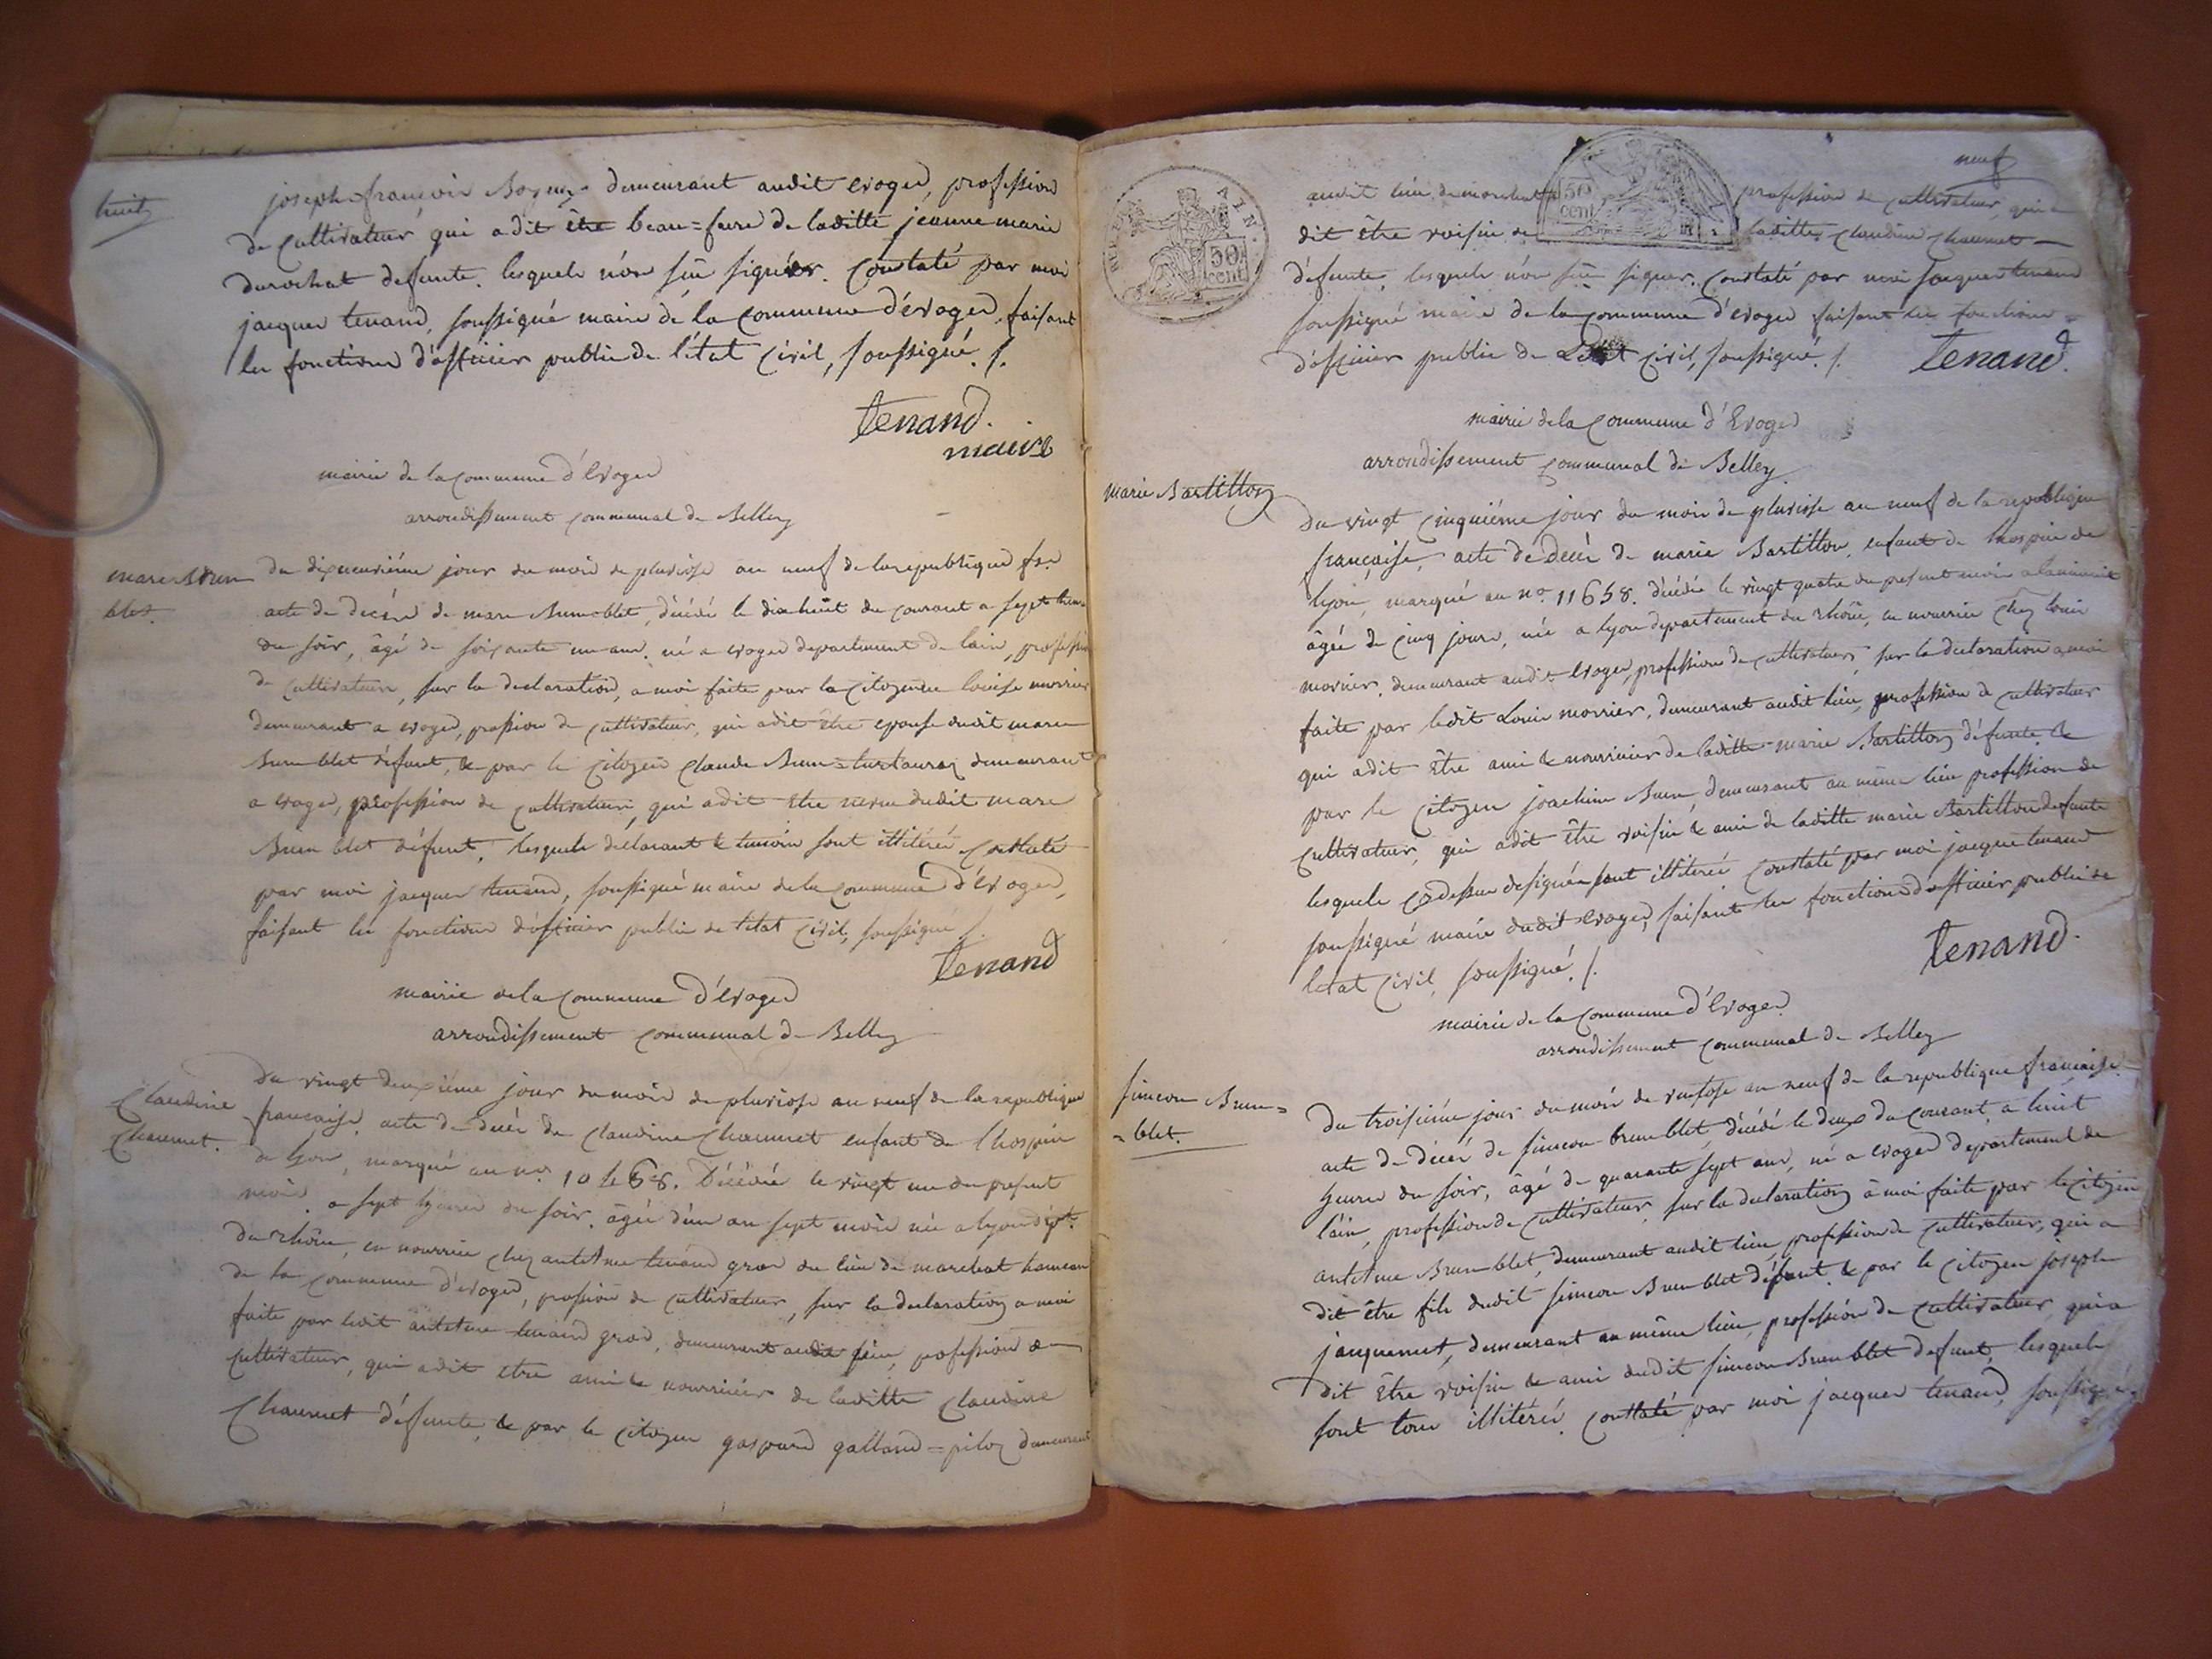 huit
joseph françois demeurant audit evoges, profession
de cultivateur qui a dit être beau=frere de laditte jeanne marie
durochat defunte. lesquels n'on sçu signer. Constaté par moi
jacques tenand, soussigné maire de la commune d'évoges, faisant
les fonctions d'officier public de l'état civil, soussigné ./.
tenand.
maire
mairie de la commune d'Evoges
arrondissement communal de Belley
marc Brun
blet.
du dixneuvième jour du mois de pluviose an neuf de la republique fse
acte de decès de marc Brun-blet, décédé le dix huit du courant a sept heures
du soir, âgé de soixante un ans. né a evoges departement de lain, profession
de cultivateur, sur la declaration, a moi faite par la citoyenne louise morrier
demeurant a evoges, profssion de cultivateur, qui a dit être epouse dudit marc
Brun blet défunt, & par le citoyen claude Brun= demeurant
a evoges, profession de cultivateur, qui a dit être neveu dudit marc
Brun blet défunt, lesquels déclarant & temoin sont illitérés Constaté
par moi jacques tenand, soussigné maire de la commune d'Evoges,
faisant les fonctions d'officier public de l'état civil, soussigné ./.
tenand
mairie de la commune d'evoges
arrondissement communal de Belley
Claudine
Chaumet.
Du vingt deuxième jour du mois de pluviose an neuf de la republique
française, acte de decès de claudine Chaumet enfant de lhospice
de lyon, marqué au no. décédée le vingt un du present
mois, a sept heures du soir, âgée d'un an sept mois née a lyon dépt.
du rhône, en nourrice chez antelme tenand gros du lieu de marchat hameau
de la commune d'evoges, profssion de cultivateur, sur la declaration a moi
faite par ledit antelme tenand gros, demeurant audit lieu, pofession de
cultivateur, qui a dit etre ami & nourricier de laditte Claudine
Chaumet défunte, & par le citoyen gaspard galland=piloz demeurant
neuf
audit lieu de marchat profession de cultivateur, qui a
dit être voisin de laditte claudine chaumet
défunte, lesquels n'on sçu signer. Constaté par moi jacques tenand
soussigné maire de la commune d'evoges faisant les fonctions
d'officier public de L'état civil, soussigné ./. tenand.
AIN.
50
cent
50
cent
mairie de la commune d'Evoges
arrondissement communal de Belley
marie Bartillon
Du vingt cinquième jour du mois de pluviose an neuf de la republique
française, acte de decès de marie Bartillon, enfant de lhospice de
lyon, marqué au no. 11658. décédée le vingt quatre du present mois a laminuit
âgée de cinq jours, née a lyon departement du rhône, en nourrice chez louis
morrier, demeurant audit evoges, profession de cultivateur, sur la declaration a moi
faite par ledit Louis morrier, demeurant audit lieu, profession de cultivateur
qui a dit être ami & nourricier de laditte marie Bartillon défunte &
par le citoyen joachim Brun, demeurant au même lieu profession de
cultivateur, qui a dit être voisin & ami de laditte marie Bartillon defunte
lesquels cydessus designés sont illitérés Constaté par moi jacques tenand
soussigné maire dudit evoges, faisant les fonctions d'officier public de
létat civil, soussigné ./.
tenand.
mairie de la commune d'Evoges
arrondissement communal de Belley
simeon Brun=
=blet.
Du troisième jour du mois de ventose an neuf de la republique française
acte de décès de simeon brun blet, décédé le deux du courant, a huit
heures du soir, âgé de quarante sept ans, né a evoges departement de
l'ain, profession de cultivateur, sur la declaration à moi faite par le citoyen
antelme Brun-blet, demeurant audit lieu, profession de cultivateur, qui a
dit être fils dudit simeon Brun blet défunt, & par le citoyen joseph
jacquemet, demeurant au même lieu, profession de cultivateur, qui a
dit être voisin & ami dudit simeon Brun blet defunt, lesquels
sont tous illitérés. Constaté par moi jacques tenand, soussigné